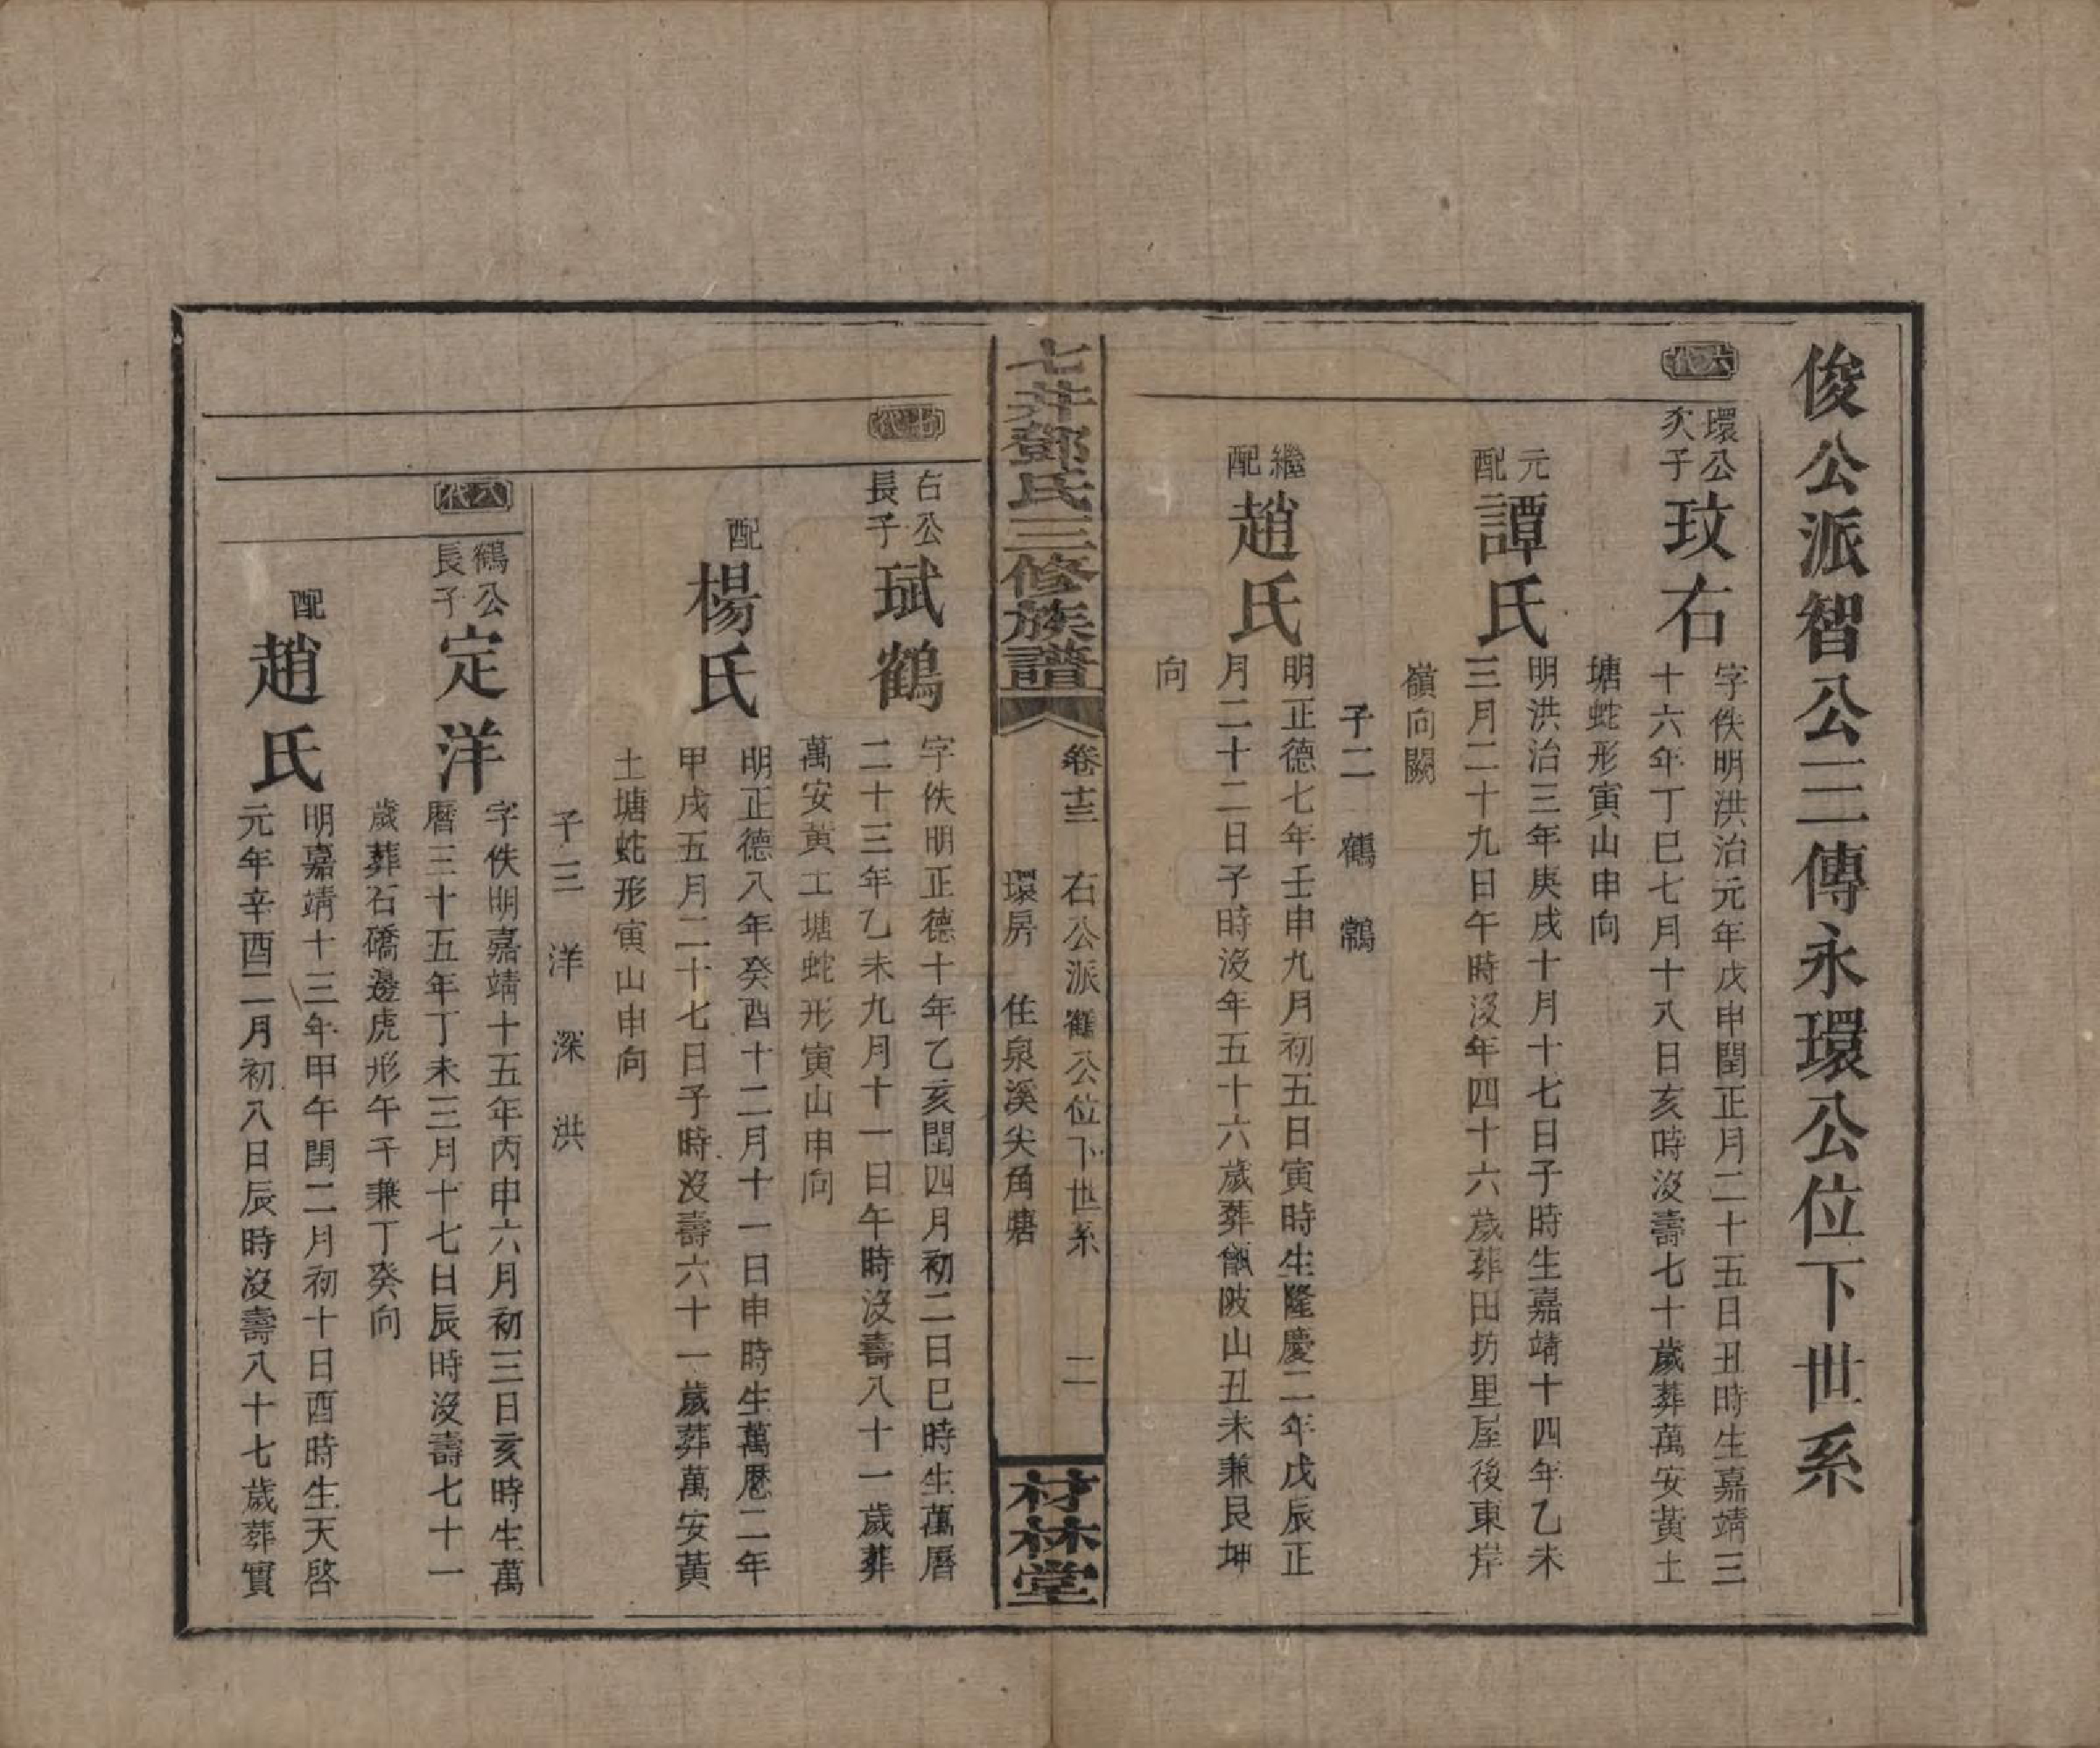 俊公派智公三傳永環公位下世系
六代
環公
次子
玟右
字佚明洪治元年戊申閏正月二十五日丑時生嘉靖三
十六年丁巳七月十八日亥時沒壽七十歲葬萬安黃土
塘蛇形寅山申向
元
配
譚氏
明洪治三年庚戌十月十七日子時生嘉靖十四年乙未
三月二十九日午時沒年四十六歲葬田坊里屋後東岸
嶺向闕
子二 鶴 鷛
繼
配
趙氏
明正德七年壬申九月初五日寅時生隆慶二年戊辰正
月二十二日子時沒年五十六歲葬甑陂山丑未兼艮坤
向
七井鄧氏三修族譜
卷十三 右公派鶴公位下世系 二
環房 住泉溪尖角塘
材林堂
七代
右公
長子
珷鶴
字佚明正德十年乙亥閏四月初二日巳時生萬曆
二十三年乙未九月十一日午時沒壽八十一歲葬
萬安黃工塘蛇形寅山申向
配
楊氏
明正德八年癸酉十二月十一日申時生萬曆二年
甲戌五月二十七日子時沒壽六十一歲葬萬安黃
土塘蛇形寅山申向
子三 洋 深 洪
八代
鶴公
長子
定洋
字佚明嘉靖十五年丙申六月初三日亥時生萬
曆三十五年丁未三月十七日辰時沒壽七十一
歲葬石磱邊虎形午子兼丁癸向
配
趙氏
明嘉靖十三年甲午閏二月初十日酉時生天啓
元年辛酉二月初八日辰時沒壽八十七歲葬實